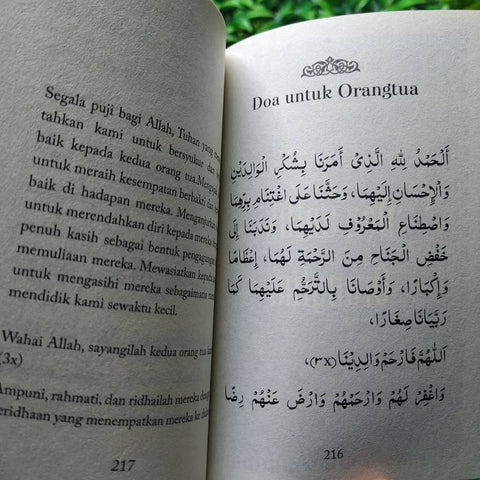 Segala puji bagi Allah, Tuhan yang
tahkan kami untuk bersyukur
baik kepada kedua orang tua.
untuk meraih kesempatan berbakti
baik di hadapan mereka. Menganjurkan
untuk merendahkan diri kepada mereka
penuh kasih sebagai bentuk pengagungan
memuliaan mereka. Mewasiatkan kepada
untuk mengasihi mereka sebagaimana
mendidik kami sewaktu kecil.
Wahai Allah, sayangilah kedua orang tua
(3x)
Ampuni, rahmati, dan ridhailah mereka
eridhaan yang menempatkan mereka ke
217
Doa untuk Orangtua
اَلْحَمْدُ لِلّٰهِ الَّذِيْ أَمَرَنَا بِشُكْرِ الْوَالِدَيْنِ
وَالْإِحْسَانِ إِلَيْهِمَا، وَحَثَّنَا عَلَى اغْتِنَامِ بِرِّهِمَا
وَاصْطِنَاعِ الْمَعْرُوْفِ لَدَيْهِمَا، وَنَدَبَنَا إِلَى
خَفْضِ الْجَنَاحِ مِنَ الرَّحْمَةِ لَهُمَا، إِعْظَامًا
وَإِكْبَارًا، وَأَوْصَانَا بِالتَّرَحُّمِ عَلَيْهِمَا كَمَا
رَبَّيَانَا صِغَارًا،
اَللّٰهُمَّ فَارْحَمْ وَالِدِيْنَا (٣x)،
وَاغْفِرْ لَهُمْ وَارْحَمْهُمْ وَارْضَ عَنْهُمْ رِضًا
216